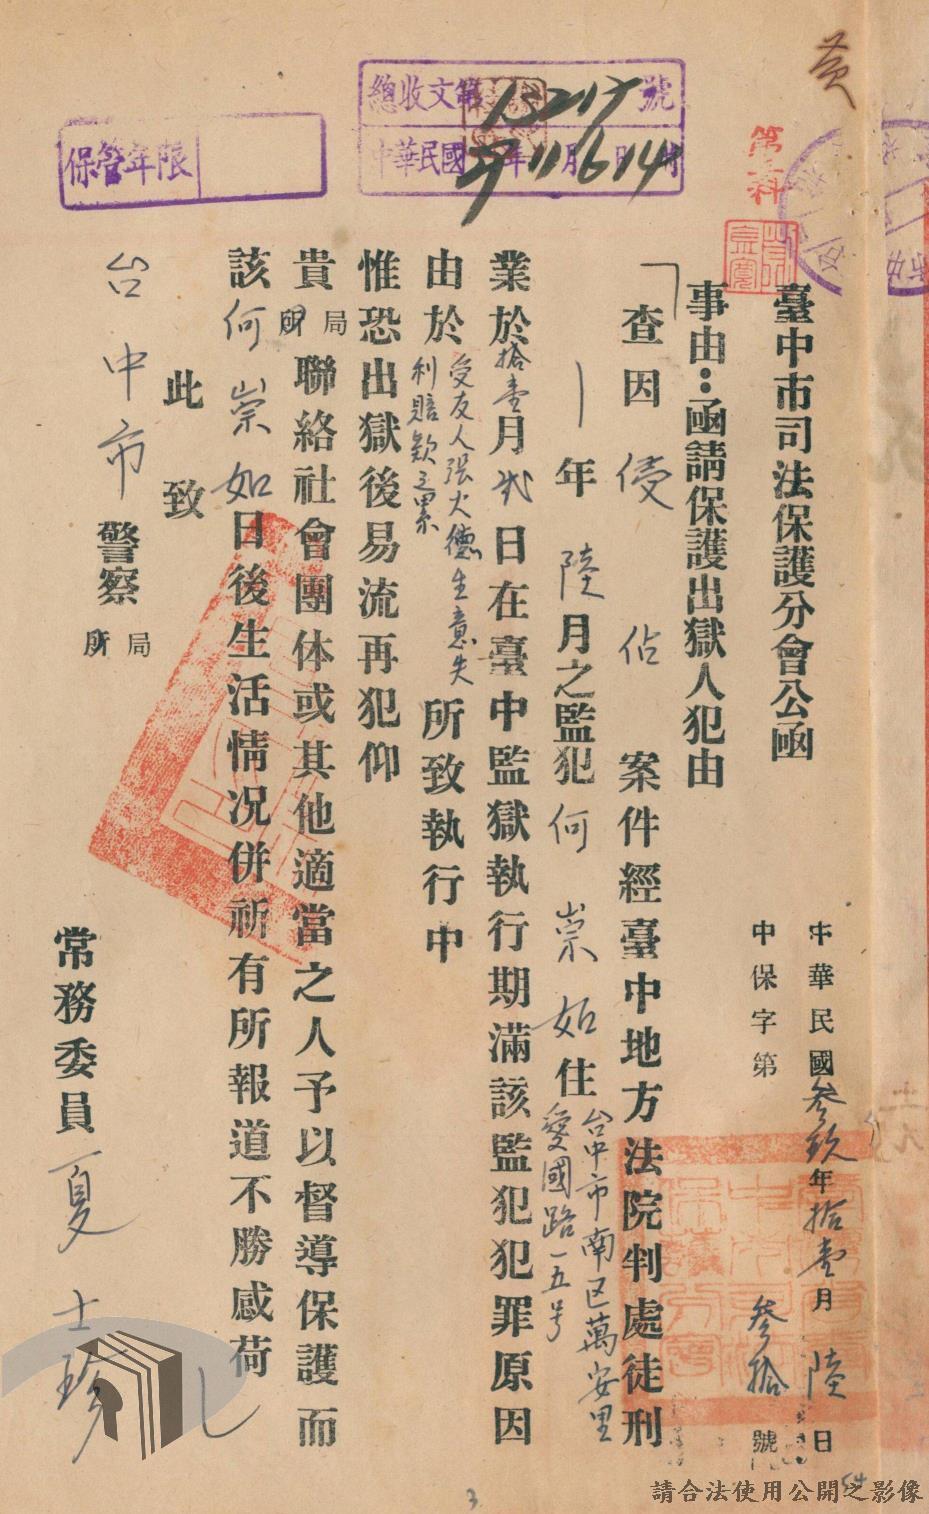 黃
總收文第 15217 號
中華民國 年 11 月 6 日 14 時
保管年限
第 科
臺中市司法保護分會公函
中華民國叁玖年拾壹月陸日
中保字第叁拾號
事由：函請保護出獄人犯由
查因侵佔案件經臺中地方法院判處徒刑
｜年陸月之監犯何崇如住台中市南区萬安里愛國路一五号
業於拾壹月弐日在臺中監獄執行期滿該監犯犯罪原因
由於受友人張火德生意失利賠欵之累所致執行中
惟恐出獄後易流再犯仰
貴局所聯絡社會團体或其他適當之人予以督導保護而
該何崇如日後生活情況併祈有所報道不勝感荷
此致
台中市警察局所
常務委員夏士珍
3
54
請合法使用公開之影像